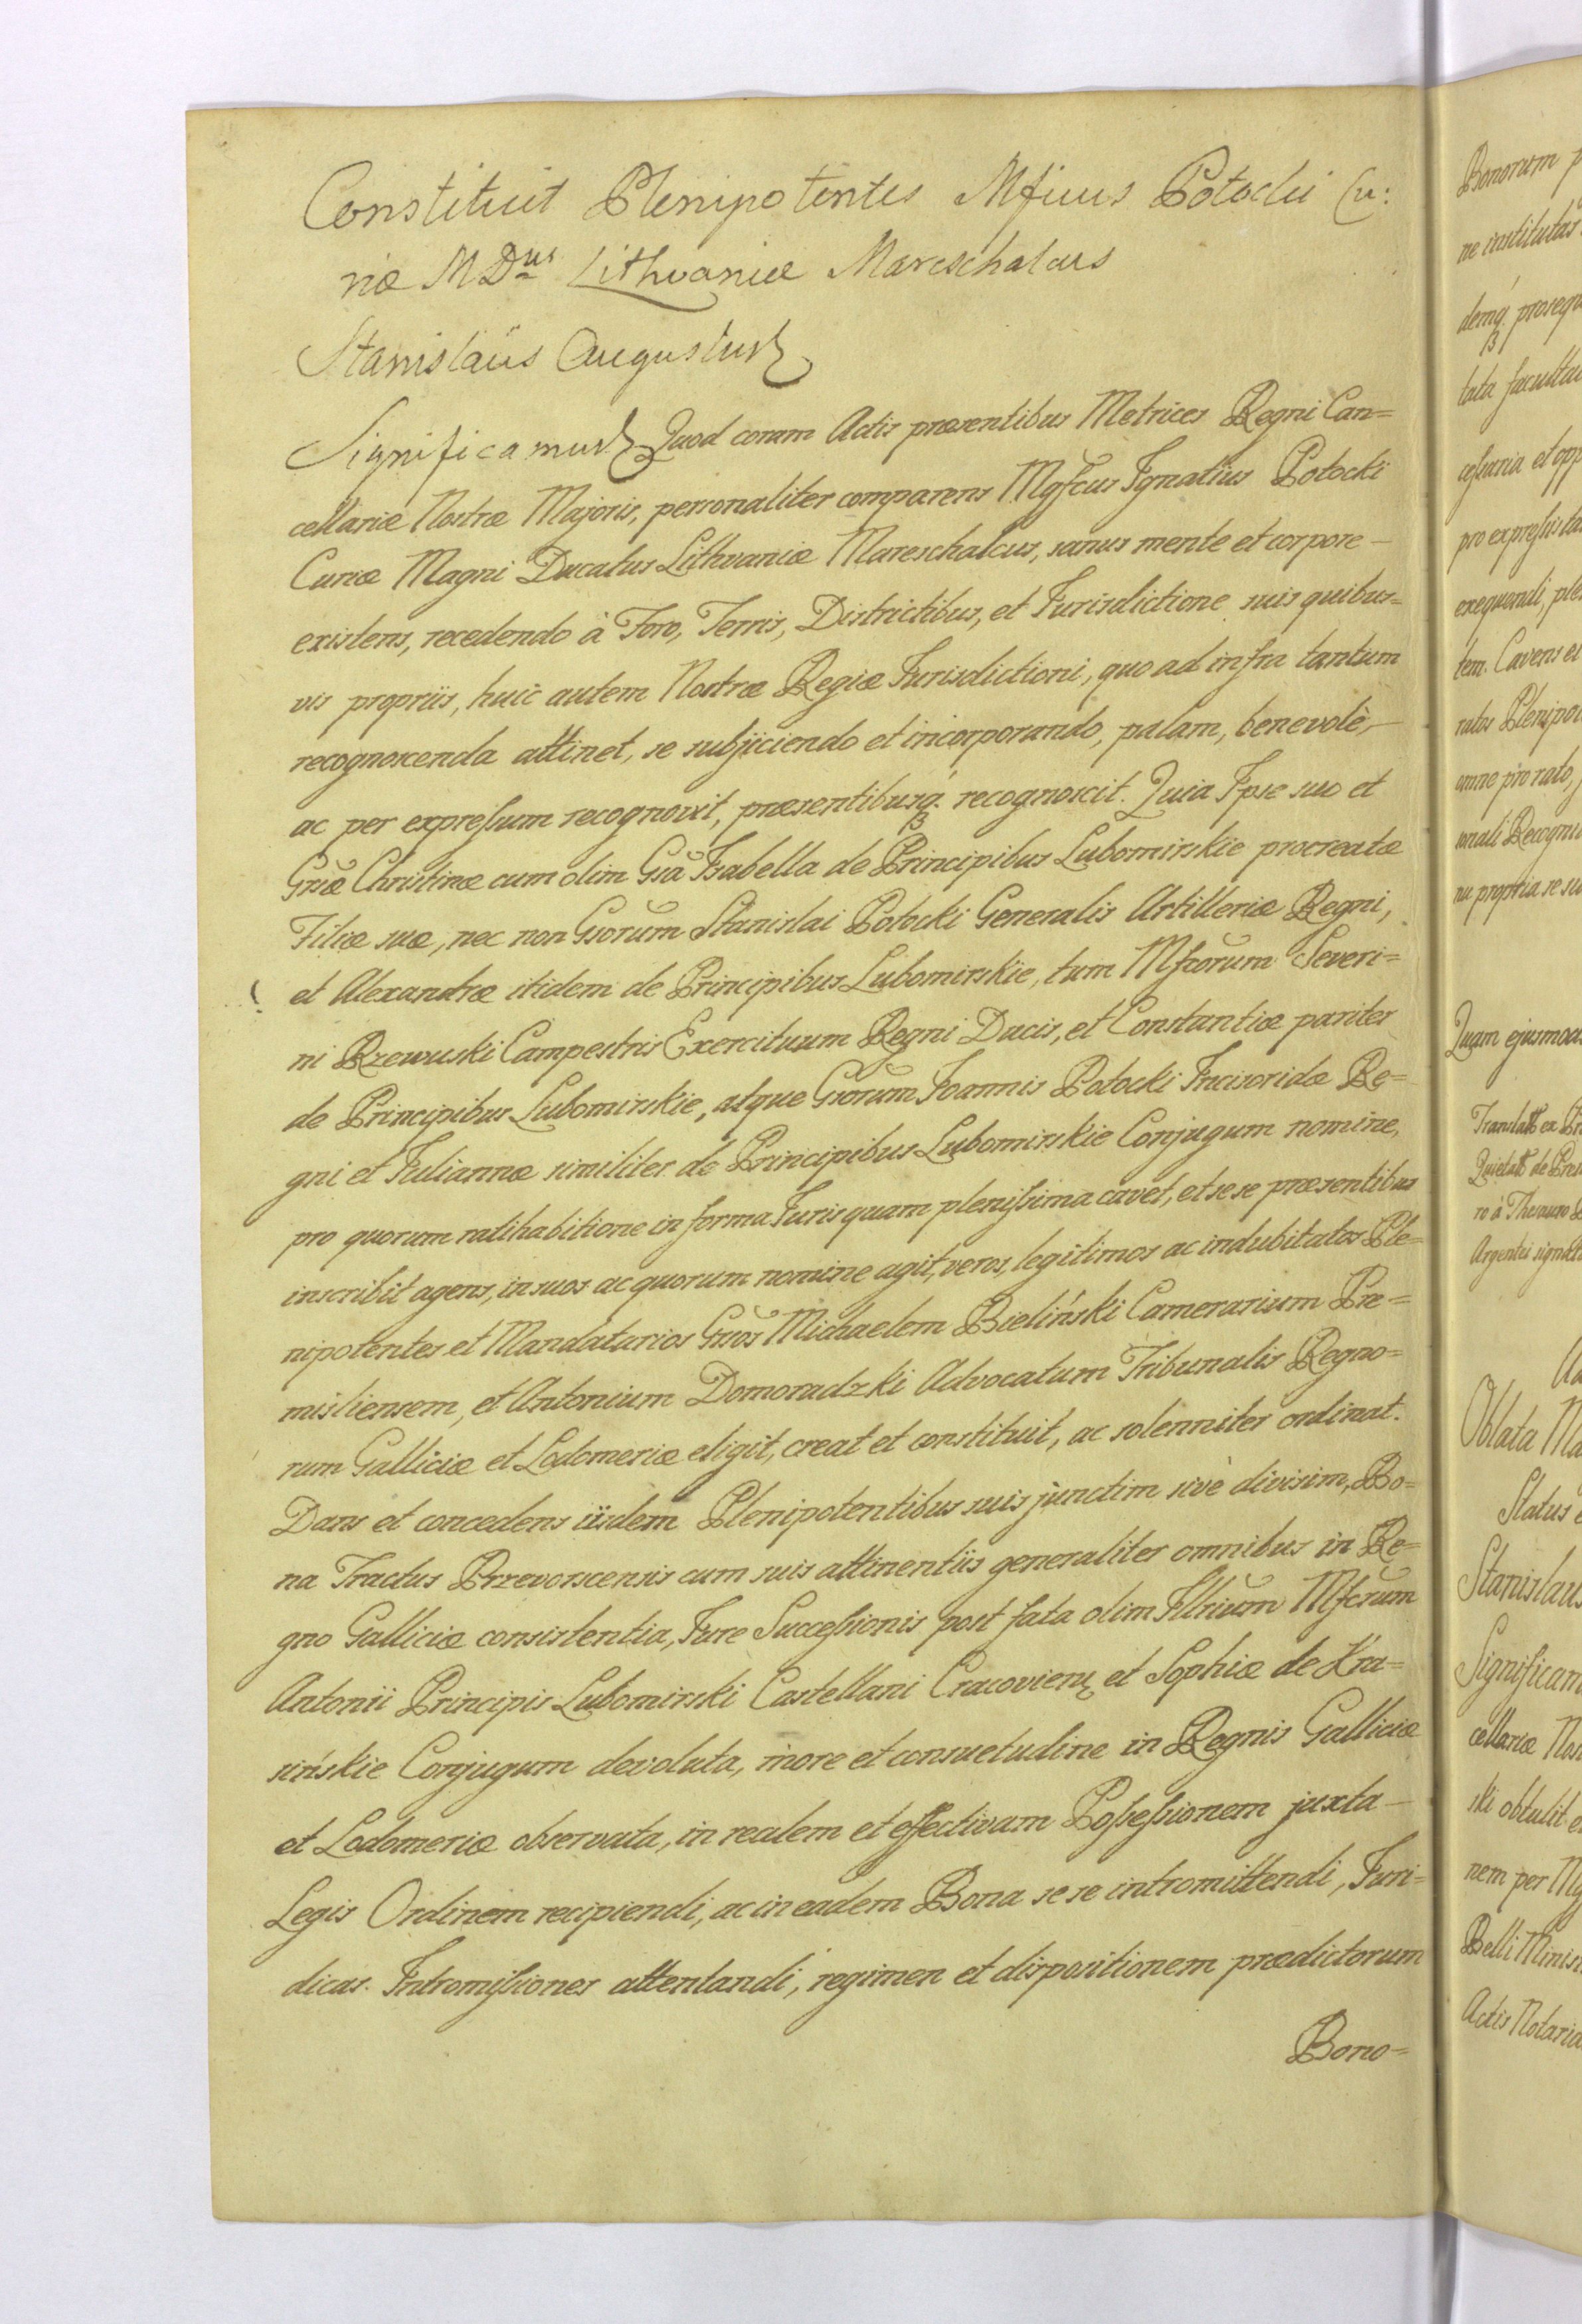 Constituit Plenipotentes Mficus Potocki Cu:
riæ M Dus Lithvaniæ Mareschalcus
Stanislaus Augustus
Significamus Quod coram Actis præsentibus Metrices Regni Can=
cellariæ Nostræ Majoris, personaliter comparens Mgfcus Ignatius Potocki
Curiæ Magni Ducatus Lithvaniæ Mareschalcus, sanus mente et corpore –
existens, recedendo à Foro, Terris, Districtibus, et Jurisdictione suis quibus=
vis propriis, huic autem Nostræ Regiæ Jurisdictioni, quo ad infra tantum
recognoscenda attinet, se subjiciendo et incorporando, palam, benevolè, –
ac per expressum recognovit, præsentibusq. recognoscit. Quia Ipse suo et
Gsæ Christinæ cum olim Gsa Isabella de Principibus Lubomirskie procreatæ
Filiæ suæ, nec non Gsorum Stanislai Potocki Generalis Artilleriæ Regni,
et Alexandræ itidem de Principibus Lubomirskie, tum Mfcorum Severi=
ni Rzewuski Campestris Exercituum Regni Ducis, et Constantiæ pariter
de Principibus Lubomirskie, atque Gsorum Joannis Potocki Incisoridæ Re=
gni et Juliannæ similiter de Principibus Lubomirskie Conjugum nomine,
pro quorum ratihabitione in forma Juris quam plenissima cavet, et sese præsentibus
inscribit agens, in suos ac quorum nomine agit, veros, legitimos ac indubitatos Ple=
nipotentes et Mandatarios Gsos Michaelem Bieliński Camerarium Pre=
misliensem, et Antonium Domoradzki Advocatum Tribunalis Regno=
rum Galliciæ et Lodomeriæ eligit, creat et constituit, ac solenniter ordinat.
Dans et concedens iisdem Plenipotentibus suis junctim sivè divisim, Bo=
na Tractus Przevorscensis cum suis attinentiis generaliter omnibus in Re=
gno Galliciæ consistentia, Jure Successionis post fata olim Illrium Mfcrum
Antonii Principis Lubomirski Castellani Cracovien et Sophiæ de Kra=
sińskie Conjugum devoluta, more et consuetudine in Regnis Galliciæ
et Lodomeriæ observata, in realem et effectivam Possessionem juxta –
Legis Ordinem recipiendi, ac in eadem Bona sese intromittendi, Juri=
dicas Intromissiones attentandi, regimen et dispositionem prædictorum
Bono=
Bonorum
ne institutas
demq. prosequ
tata facultat
cessaria et opp
pro expressis ta
exequendi, ple
tem. Cavens et
ratos Plenipot
omne pro rato,
sonali Recogni
nu propria se su
Quam ejusmodi
Oblata Ma
Status
Stanislaus
Significam
cellariæ Nos
ski obtulit e
nem per Mg
Belli Minis
Actis Notaria